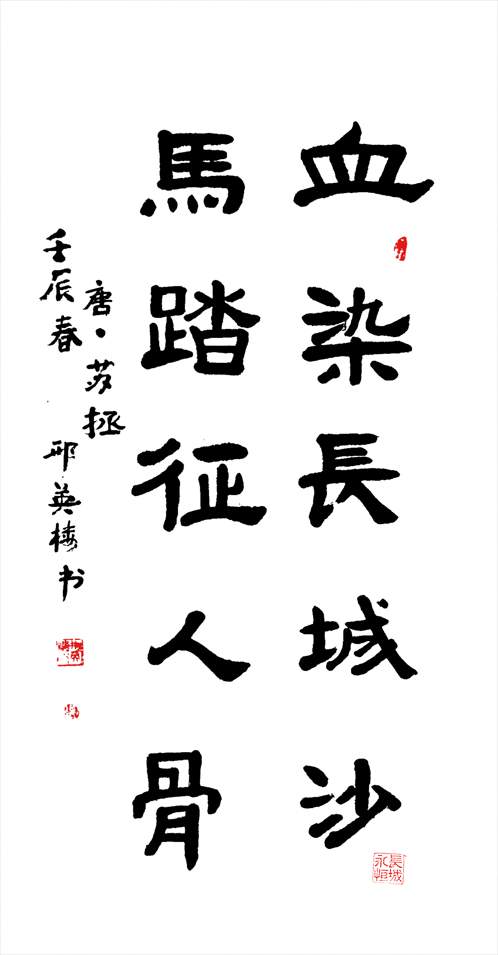 血染長城沙
馬踏征人骨
唐·苏拯
壬辰春 邢英梅书
長城永恒